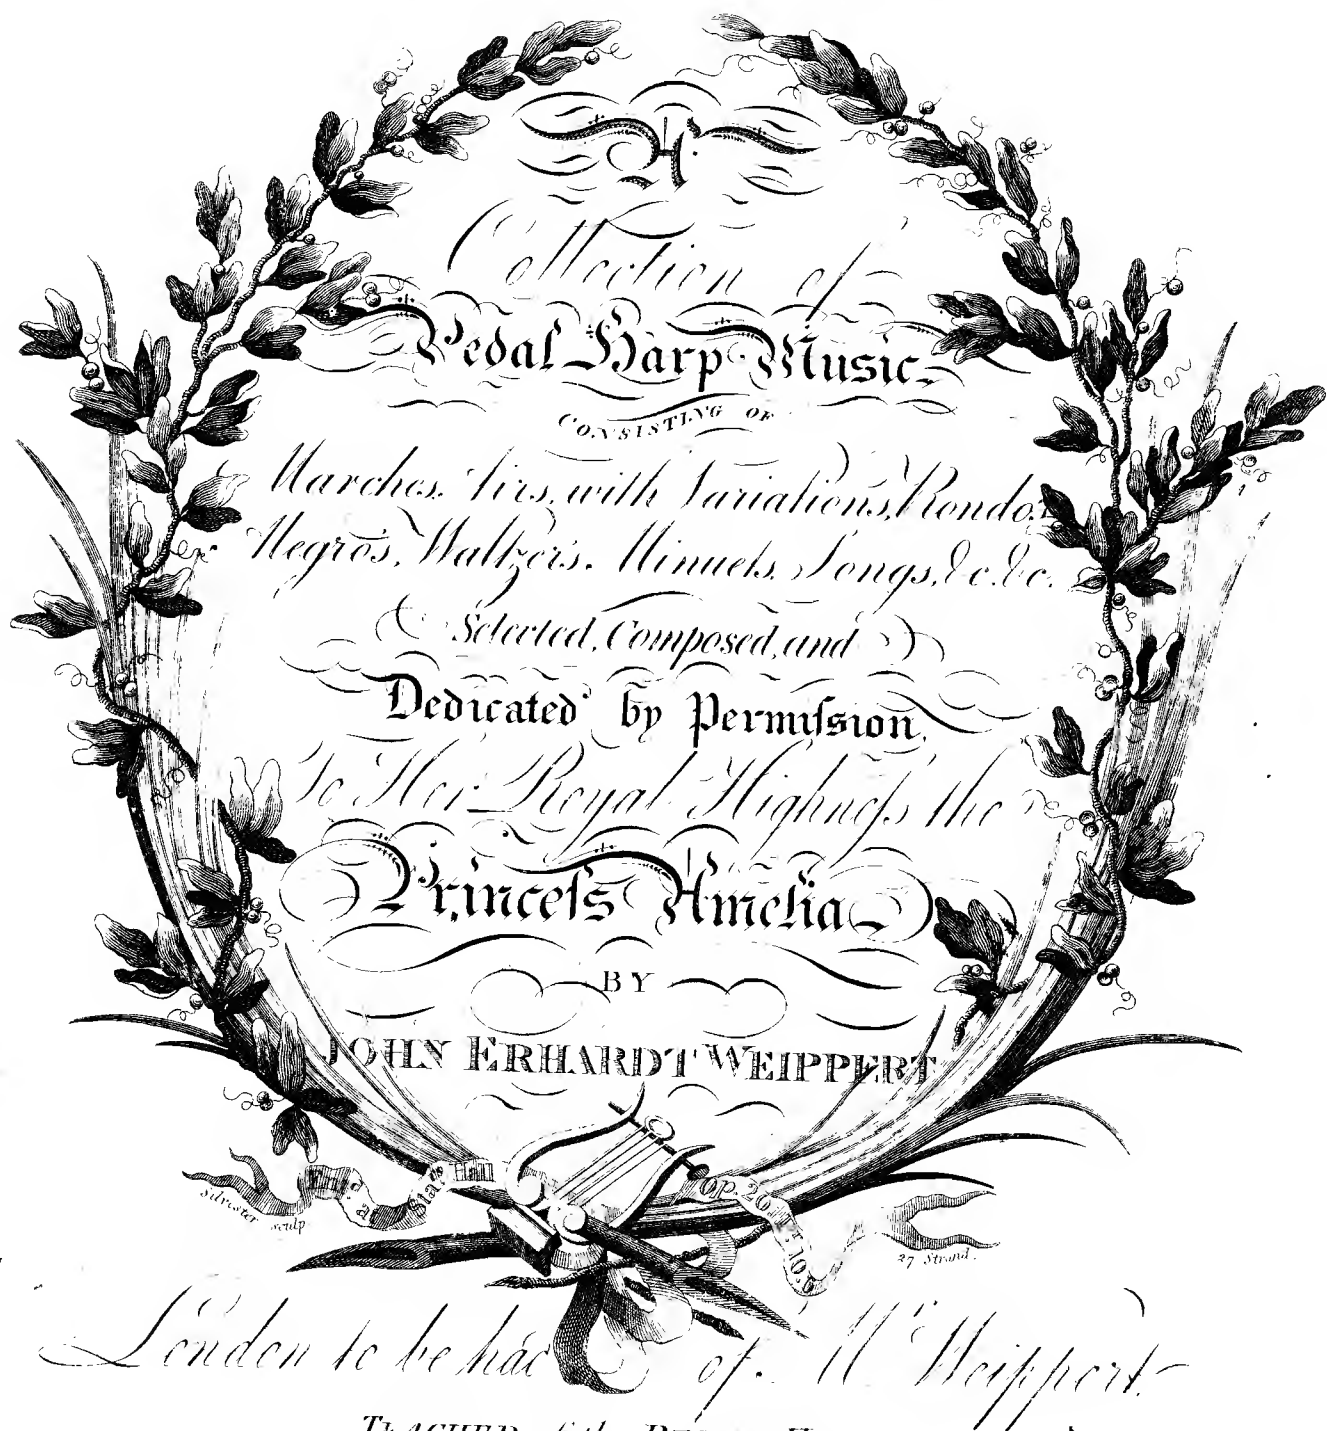 A
Collection of
Pedal Harp Music
CONSISTING OF
Marches, Airs, with Variations, Rondo's,
Negro's, Waltzer's, Minuets, Songs, &c. &c.
Selected, Composed, and
Dedicated by Permiſsion,
To Her Royal Highneſs the
Princeſs Amelia
BY
JOHN ERHARDT WEIPPERT
Entd. at Stars. Hall
Op. 20 Pr. 10.6
Silvester sculp
27 Strand.
London to be had of Mr. Weippert.
TEACHER of the